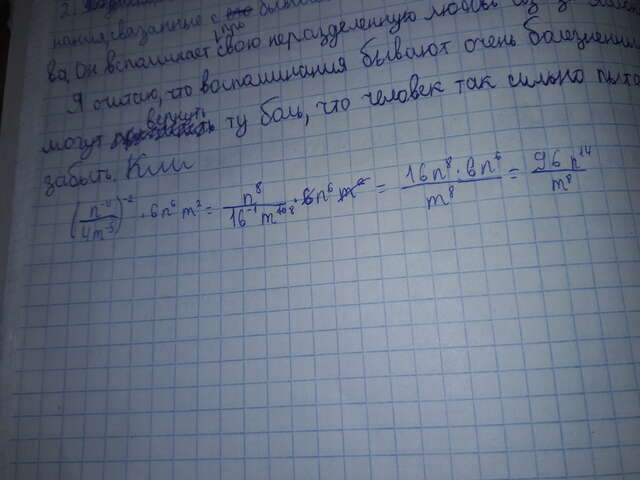 2.
нания, связанные с
ва. Он вспоминает свою неразделенную любовь из
Я считаю, что воспоминания бывают очень болезненны
могут вернуть ту боль, что человек так сильно пыта
забыть.
(n⁻⁴/4m⁻⁵)⁻² · 6n⁶m² = n⁸/16⁻¹m¹⁰ ⁸ · 6n⁶m² = 16n⁸·6n⁶/m⁸ = 96n¹⁴/m⁸